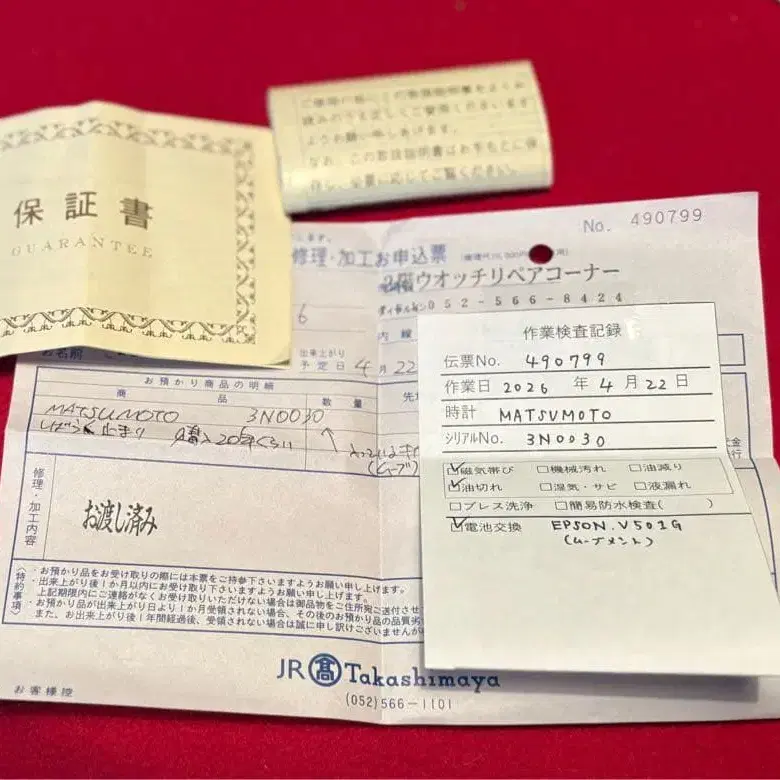 保証書
GUARANTEE
ご使用の前にこの取扱説明書をよくお
読みのうえ正しくご愛用くださいます
ようお願い申しあげます。
なお、この取扱説明書はお手もとに保
存し、必要に応じてご覧ください。
No. 490799
修理・加工お申込票
2階ウオッチリペアコーナー
ダイヤルイン052-566-8424
6
内線
お名前
出来上がり
予定日 4月22
お預かり商品の明細
商品 数量
MATSUMOTO 3N0030
しばらく止まり 購入20年くらい
(ムーブ)
修理・加工内容
お渡し済み
〈特約事項〉
・お預かり品をお受け取りの際には本票をご持参下さいますようお願い申し上げます。
・出来上がり後1か月以内にお受け取り下さいますようお願い申し上げます。
上記期限内にご連絡がなくお受け取りいただけない場合は御品物をご住所宛ご送付させ
・お預かり品が出来上がり日より1か月受領されない場合、その後のお預かり品の品質劣
また、お出来上がり後1年間経過後、受領されない場合は誠に申し訳けございませんが
JR 髙 Takashimaya
(052)566-1101
お客様控
作業検査記録
伝票No. 490799
作業日 2026年4月22日
時計 MATSUMOTO
シリアルNo. 3N0030
☑磁気帯び □機械汚れ □油減り
☑油切れ □湿気・サビ □液漏れ
□ブレス洗浄 □簡易防水検査( )
☑電池交換 EPSON.V501G
(ムーブメント)